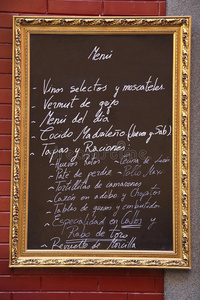 Menú
- Vinos selectos y moscateles.
- Vermut de grifo
- Menú del día
- Cocido Madrileño (Jueves y Sáb)
- Tapas y Raciones:
- Huevos Rotos
- Paté de perdiz - Pollo
- Tortillitas de camarones
- Cazón en adobo y Chopitos
- Tablas de quesos y embutidos
- Especialidad en Callos y
Rabo de Toro
- Revuelto de Morcilla